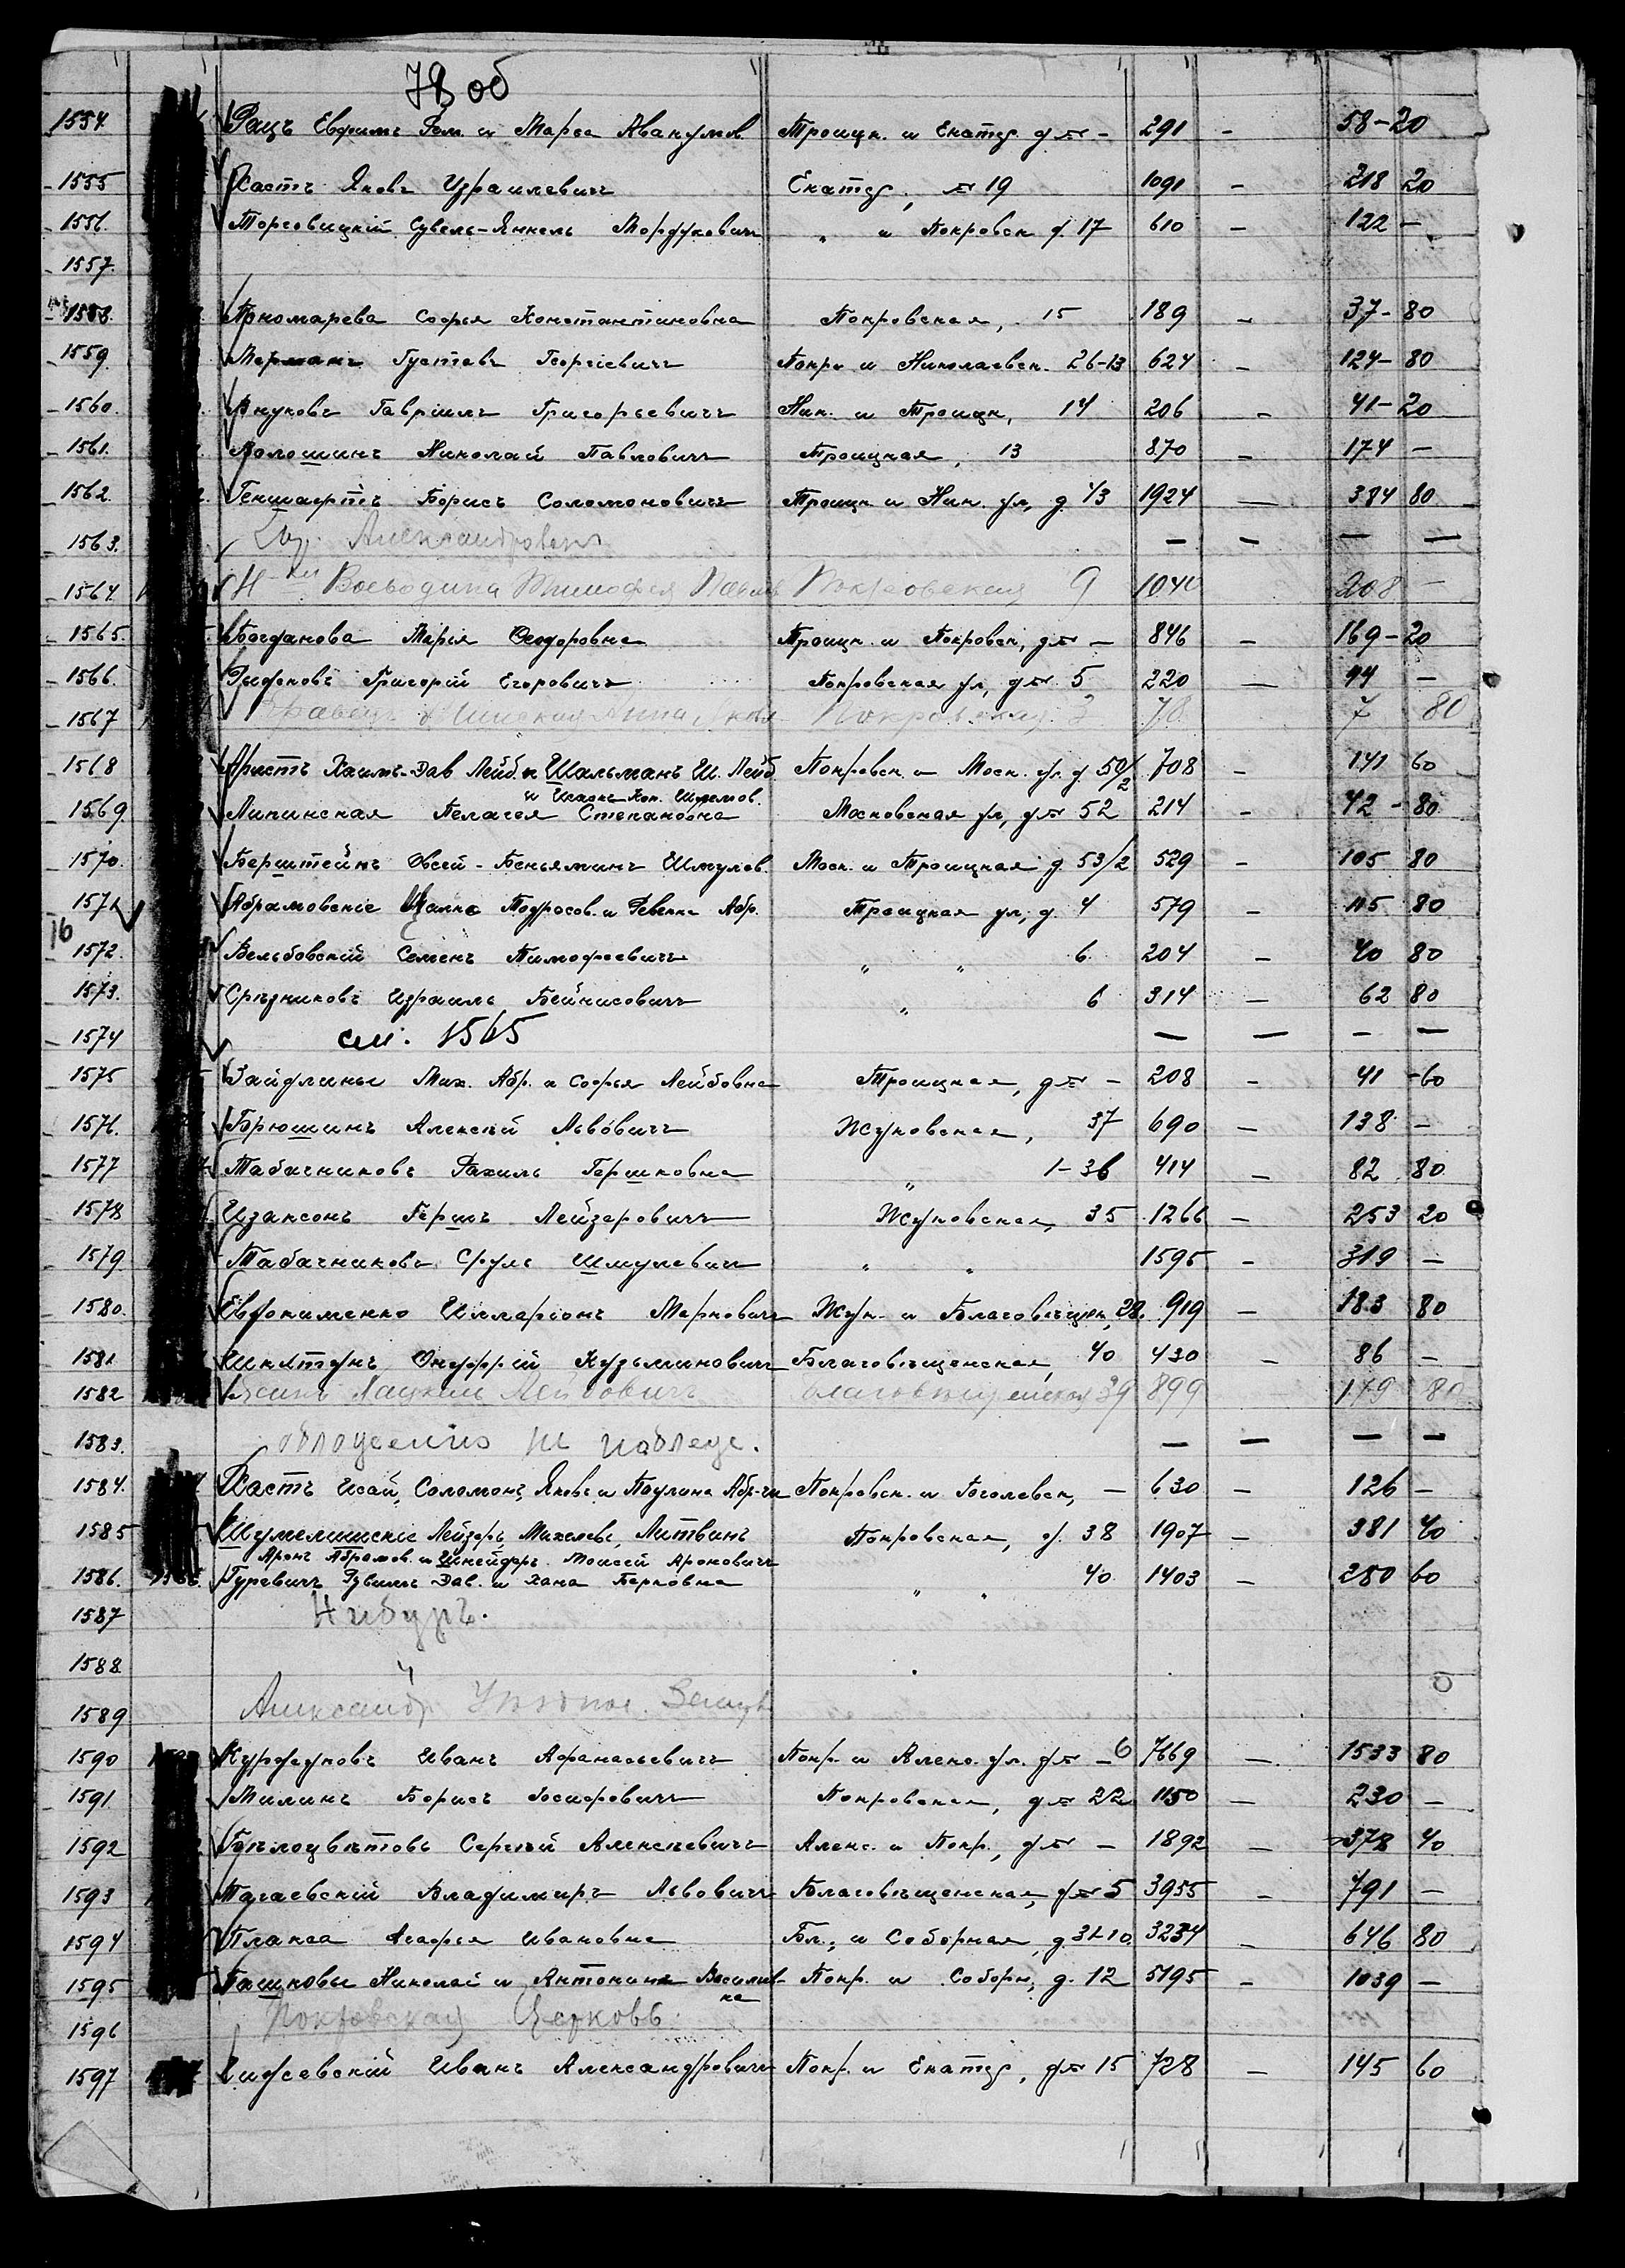 78 об
1554. Рацъ Евфимъ и Марѳа Аввакумов. Троицк. и Екатер. д № - 291 - 58-20
1555 Хастъ Яковъ Израилевичъ Екатер, № 19 1091 - 218 20
1556. Сувель-Янкель Мордуховичъ " и Покровск д. 17 610 - 122 -
1557.
1558. Пономарева Софья Константиновна Покровская, 15 189 - 37-80
1559. Густавъ Георгіевичъ Покр. и Николаевск. 26-13 624 - 124-80
1560. Внуковъ Гавріилъ Григорьевичъ Ник. и Троицк, 14 206 - 41-20
1561. Волошинъ Николай Павловичъ Троицкая, 13 870 - 174 -
1562. Борисъ Соломоновичъ Троицк. и Ник. ул, д. 1924 - 384 80
1563. - - - -
1564. Н-ки Воеводина Тимофея Покровская 9 208 -
1565. Богданова Марья Ѳеодоровна Троицк. и Покровск, д № - 846 - 169-20
1566. Григорій Егоровичъ Покровская ул, д № 5 220 - 44 -
1567 Анна Покровская 3 7 80
1568 Аристъ Хаимъ-Дав Лейб. и Шальманъ Ш. Лейб. Покровск. и Моск. ул. д 50/2 708 - 141 60
и Шлемов.
1569 Липинская Пелагея Степановна Московская ул, д № 52 214 - 42-80
1570. Берштейнъ Овсей-Беньяминъ Шмулев. Моск. и Троицкая д. 53/2 529 - 105 80
1571 Абрамовскіе и Ревекка Абр. Троицкая ул, д. 4 579 - 115 80
16
1572. Вельбовскій Семенъ Тимофеевичъ " " 6 204 - 40 80
1573. Срѣзниковъ Израиль Бейнисовичъ " 6 314 - 62 80
1574 см. 1565 - - - -
1575 Зайдлины Мих. Абр. и Софья Лейбовна Троицкая, д № - 208 - 41-60
1576. Брюшинъ Алексѣй Львовичъ Жуковская, 37 690 - 138 -
1577 Табачниковъ Рахиль Гершковна " 1-36 414 - 82 80
1578 Изаксонъ Гершъ Лейзеровичъ Жуковская, 35 1266 - 253 20
1579 Табачниковъ Сруль Шмулевичъ " " 1595 - 319 -
1580. Евфименко Илларіонъ Марковичъ Жук. и Благовѣщен, 28. 919 - 183 80
1581 Онуфрій Кузьминовичъ Благовѣщенская, 40 430 - 86 -
1582 Лейбовичъ Благовѣщенская 39 899 179 80
1583. обложенію не подлеж. - - - -
1584. Хастъ Исай, Соломонъ, Яковъ и Паулина Абр-чи Покровск. и Гоголевск, - 630 - 126 -
1585 Лейзеръ, Литвинъ Покровская, д. 38 1907 - 381 40
Аронъ Абрамов. и Шнейдеръ Моисей Ароновичъ
1586. Гуревичъ Рувимъ Дав. и Хана Берковна " " 40 1403 - 280 60
1587 Нибуръ.
1588
1589 Александр.
1590 Иванъ Афанасьевичъ Покр. и Алекс. ул. д № - 6 7669 - 1533 80
1591 Милинъ Борисъ Іосифовичъ Покровская, д № 22 1150 - 230 -
1592 Сергѣй Алексѣевичъ Алекс. и Покр., д № - 1892 - 378 40
1593 Тагаевскій Владимиръ Львовичъ Благовѣщенская, д № 5 3955 - 791 -
1594 Агафья Ивановна Бл., и Соборная д. 31-10. 3234 - 646 80
1595 Пашковы Николай и Антонина Василивна Покр. и Соборн, д. 12 5195 - 1039 -
1596 Покровская Церковь.
1597 Иванъ Александровичъ Покр. и Екатер, д № 15 728 - 145 60